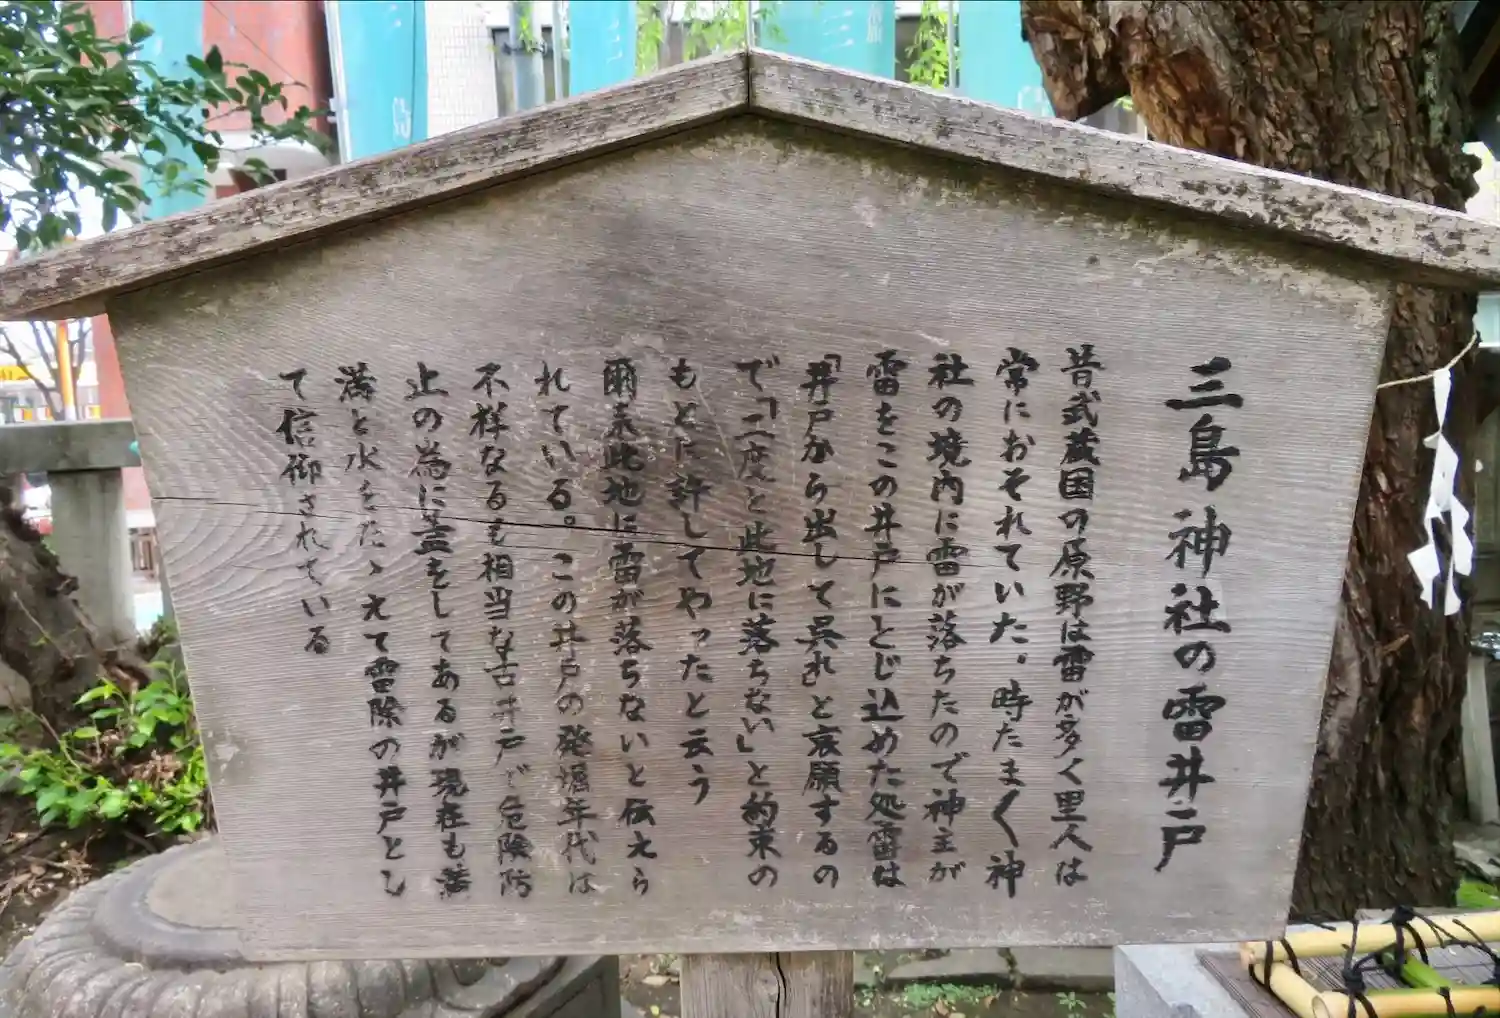 三島神社の雷井戸
昔武蔵国の原野は雷が多く里人は
常におそれていた。時たま〱神
社の境内に雷が落ちたので神主が
雷をこの井戸にとじ込めた処雷は
「井戸から出して呉れ」と哀願するの
で「二度と此地に落ちない」と約束の
もとに許してやったと云う
爾来此地に雷が落ちないと伝えら
れている。この井戸の発堀年代は
不祥なるも相当な古井戸で危険防
止の為に蓋をしてあるが現在も滿
滿と水をたゝえて雷除の井戸とし
て信仰されている